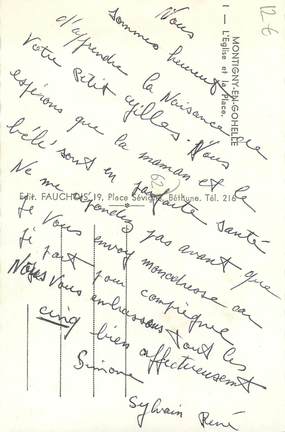 Nous
sommes heureux
d'apprendre la Naisance de
Votre Petit gilles. Nous
espérons que la maman et le
bébé sont en parfaite santé
Ne me pas avant que
Je Vous envoy mon adresse car
Je part pour compiègne
Nous Vous embrassons tout les
cinq bien affectueusement
Simone
Sylvain René
MONTIGNY-EN-GOHELLE
I — L'Eglise et la Place.
Edit. FAUCHOIS, 19, Place Sévigné, Béthune. Tél. 216
62